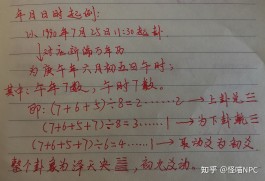 年月日时起例:
以1990年7月25日11:30起卦
对应新编万年历
为庚午年六月初五日午时;
其中:午年7数,午时7数。
即:(7+6+5)÷8=2……2→上卦兑三
(7+6+5+7)÷8=3……1→为下卦乾三
(7+6+5+7)÷6=4……1→取动爻为初爻
整个卦象为泽天夬,初九爻动。
知乎 @怪喵NPC